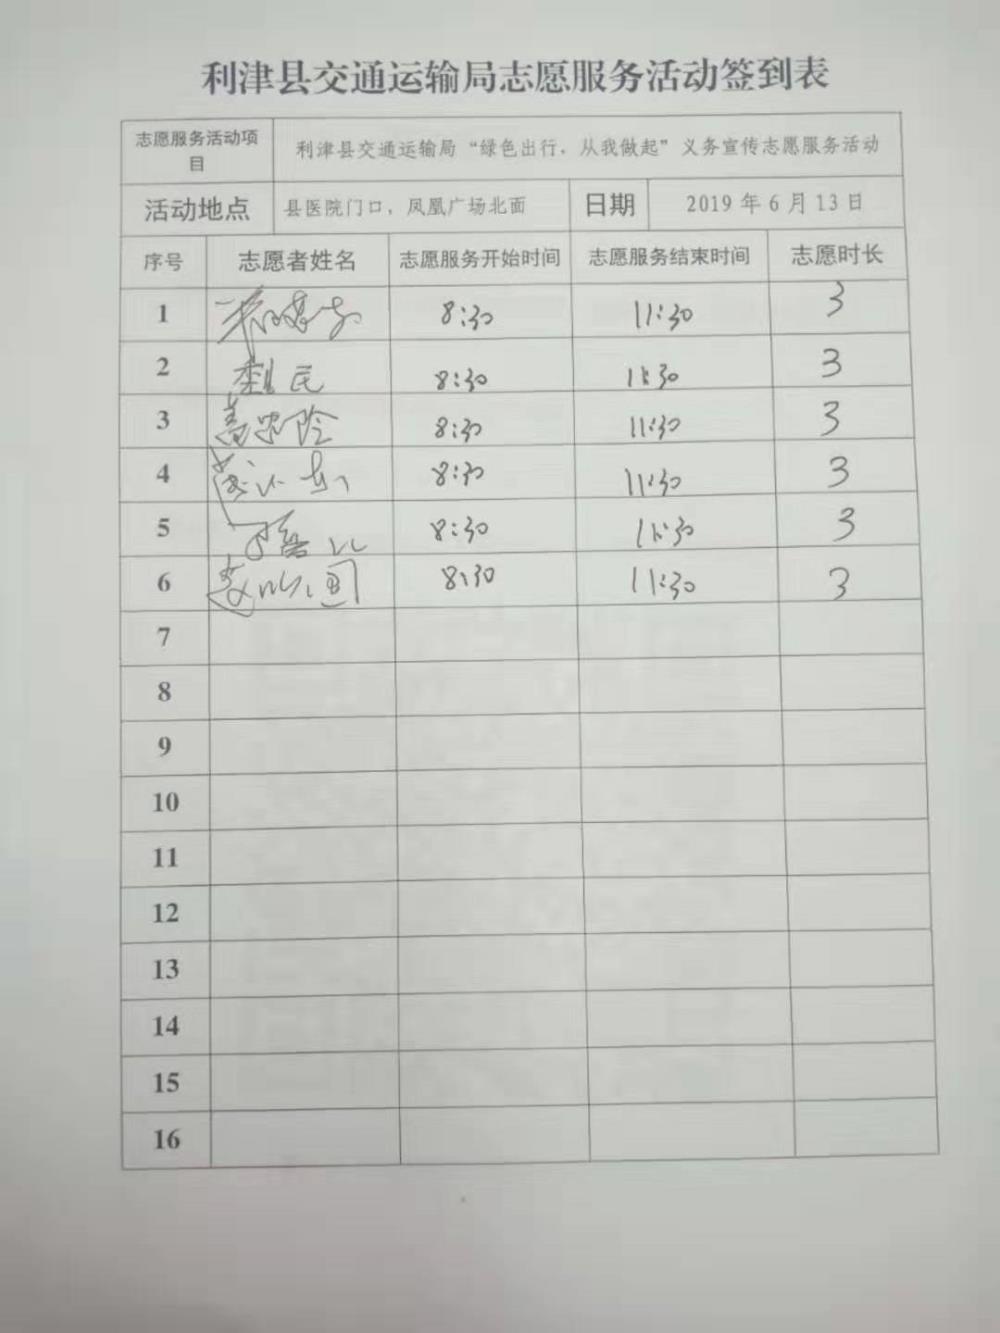 利津县交通运输局志愿服务活动签到表
志愿服务活动项目 利津县交通运输局“绿色出行，从我做起”义务宣传志愿服务活动
活动地点 县医院门口，凤凰广场北面 日期 2019 年 6 月 13 日
序号 志愿者姓名 志愿服务开始时间 志愿服务结束时间 志愿时长
1 8:30 11:30 3
2 8:30 11:30 3
3 8:30 11:30 3
4 8:30 11:30 3
5 8:30 11:30 3
6 8:30 11:30 3
7
8
9
10
11
12
13
14
15
16